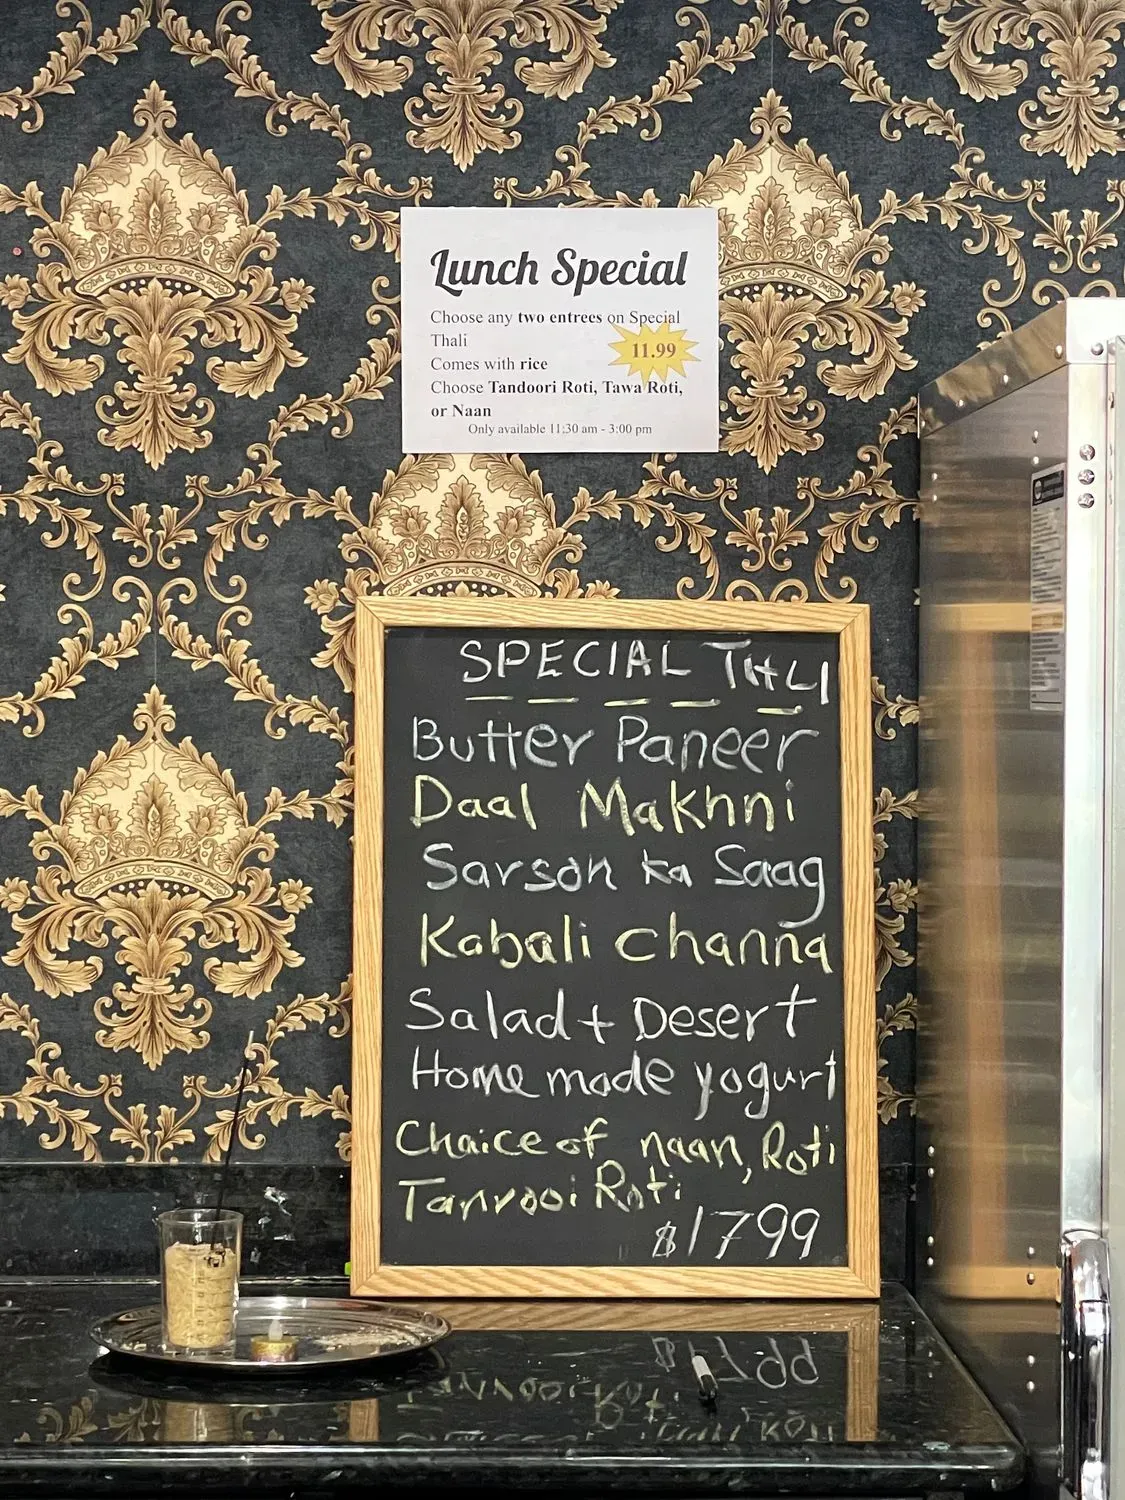 Lunch Special
Choose any two entrees on Special
Thali
11.99
Comes with rice
Choose Tandoori Roti, Tawa Roti,
or Naan
Only available 11:30 am - 3:00 pm
SPECIAL THLI
Butter Paneer
Daal Makhni
Sarson ka Saag
Kabali channa
Salad + Desert
Home made yogurt
Chaice of naan, Roti
Tanrooi Roti
$1799